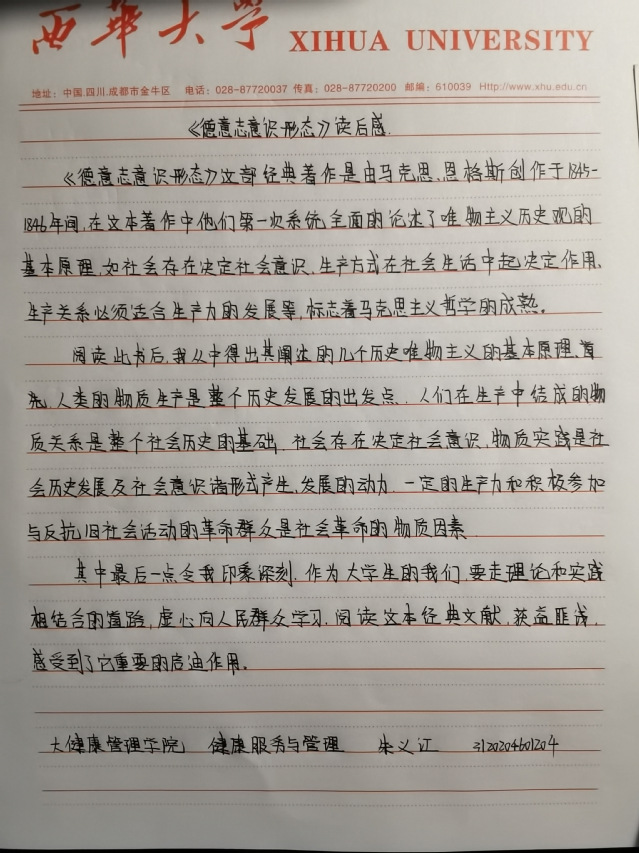 西华大学 XIHUA UNIVERSITY
地址：中国.四川.成都市金牛区 电话：028-87720037 传真：028-87720200 邮编：610039 Http://www.xhu.edu.cn
《德意志意识形态》读后感.
《德意志意识形态》这部经典著作是由马克思、恩格斯创作于1845-
1846年间,在这本著作中他们第一次系统,全面的论述了唯物主义历史观的
基本原理,如社会存在决定社会意识、生产方式在社会生活中起决定作用、
生产关系必须适合生产力的发展等,标志着马克思主义哲学的成熟。
阅读此书后,我从中得出其阐述的几个历史唯物主义的基本原理、首
先,人类的物质生产是整个历史发展的出发点.、人们在生产中结成的物
质关系是整个社会历史的基础、社会存在决定社会意识,物质实践是社
会历史发展及社会意识诸形式产生,发展的动力、一定的生产力和积极参加
与反抗旧社会活动的革命群众是社会革命的物质因素
其中最后一点令我印象深刻,作为大学生的我们,要走理论和实践
相结合的道路,虚心向人民群众学习.阅读这本经典文献,获益匪浅,
感受到了它重要的启迪作用.
大健康管理学院 健康服务与管理 朱义江 3120204601204